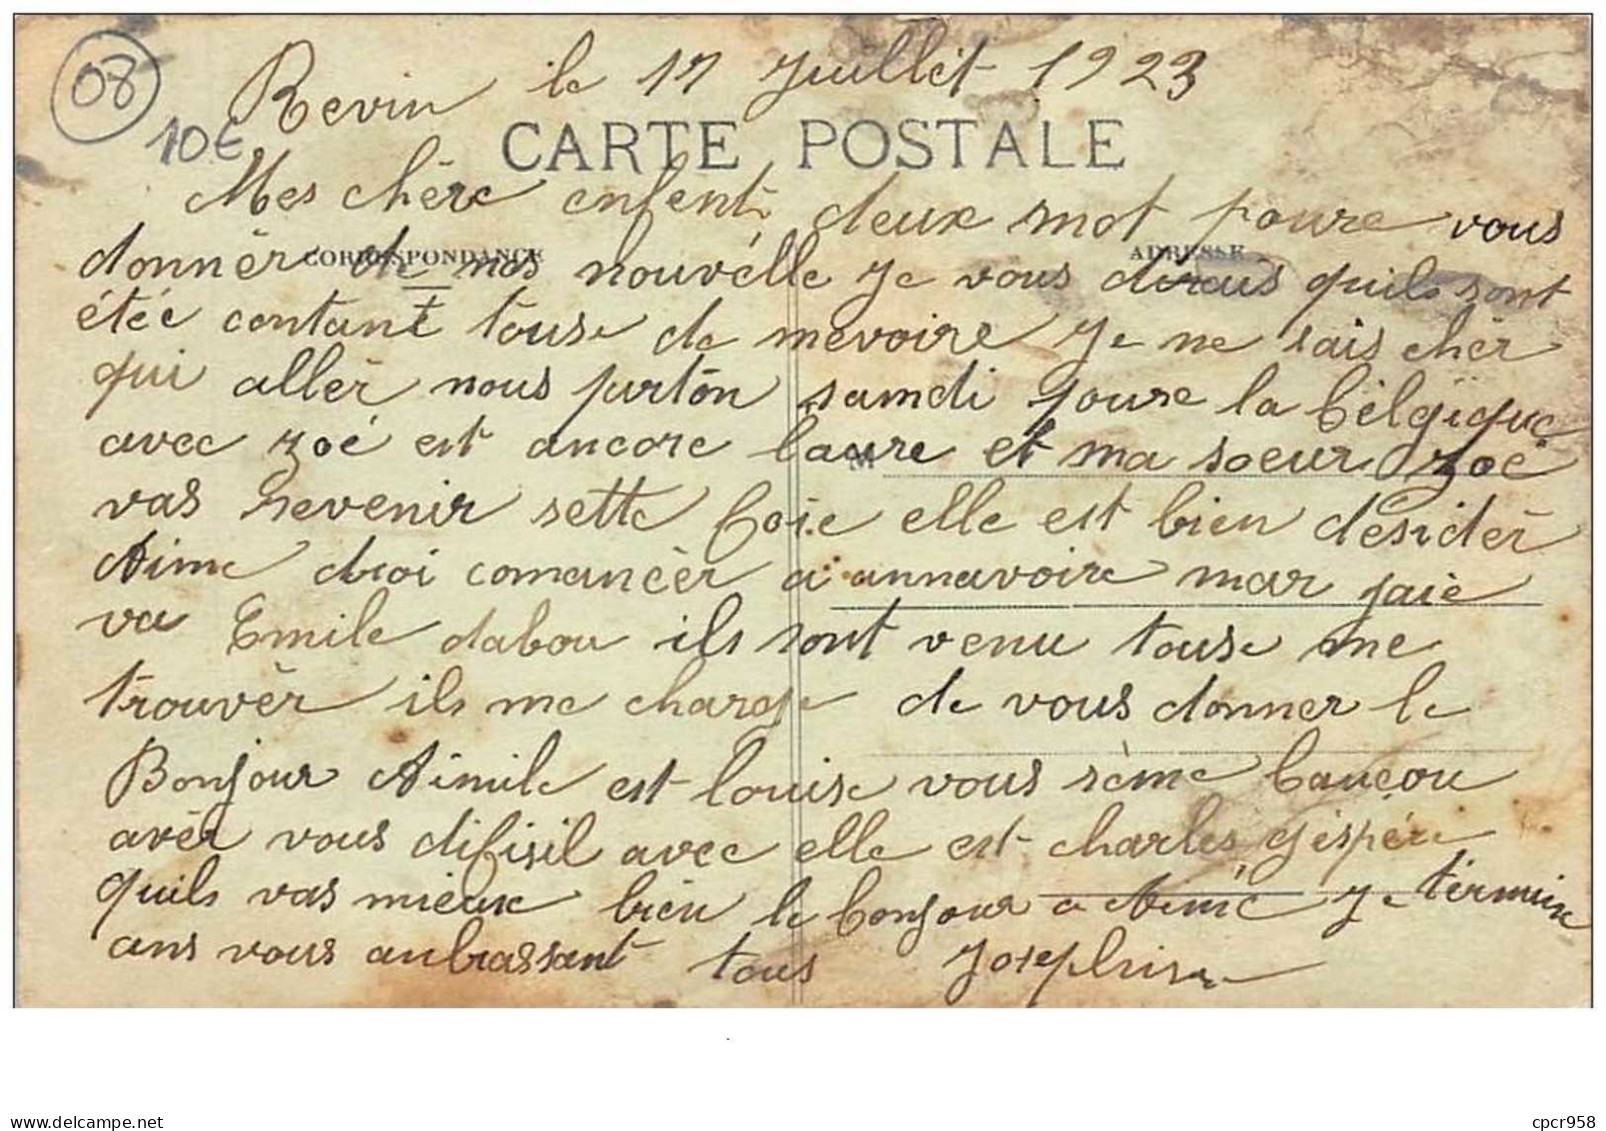 08
Revin le 17 Juillet 1923
10€
CARTE POSTALE
Mes chère enfent, deux mot poure vous
CORRESPONDANCE
ADRESSE
donnér de mes nouvélle Je vous dirais quils sont
étée contant touse de mevoire Je ne sais chér
qui allér nous partôn samdi poure la Bélgique
avec Zoé est ancore laure et ma soeur Zoé
M
vas revenir sette fois elle est bien désidér
Aime doi comancèr a annavoire mar jaie
va Emile dabou ils sont venu touse me
trouvér ils me charge de vous donner le
Bonjour Aimile est louise vous sème baucou
avér vous difisil avec elle est charles, jéspére
quils vas mieux bien le bonjour a Aime Je términe
ans vous anbrassant tous Josephine
delcampe.net
cpcr958